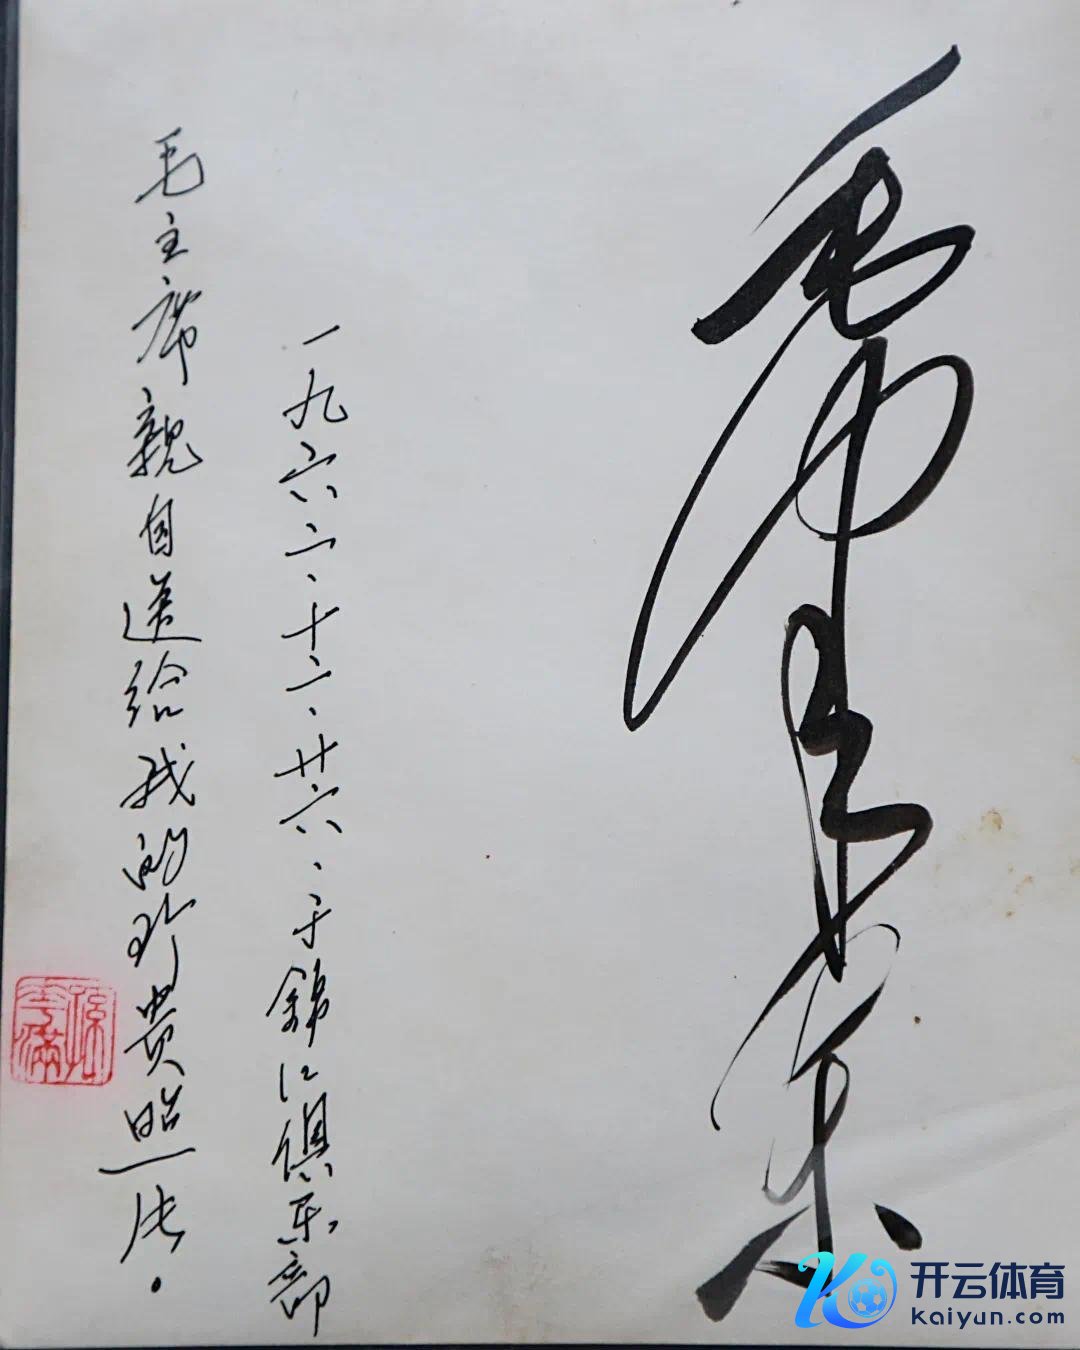 毛澤東
一九六二、十二、廿六、于錦江俱乐部
毛主席親自送给我的珍贵照片。
开云体育
kaiyun.com